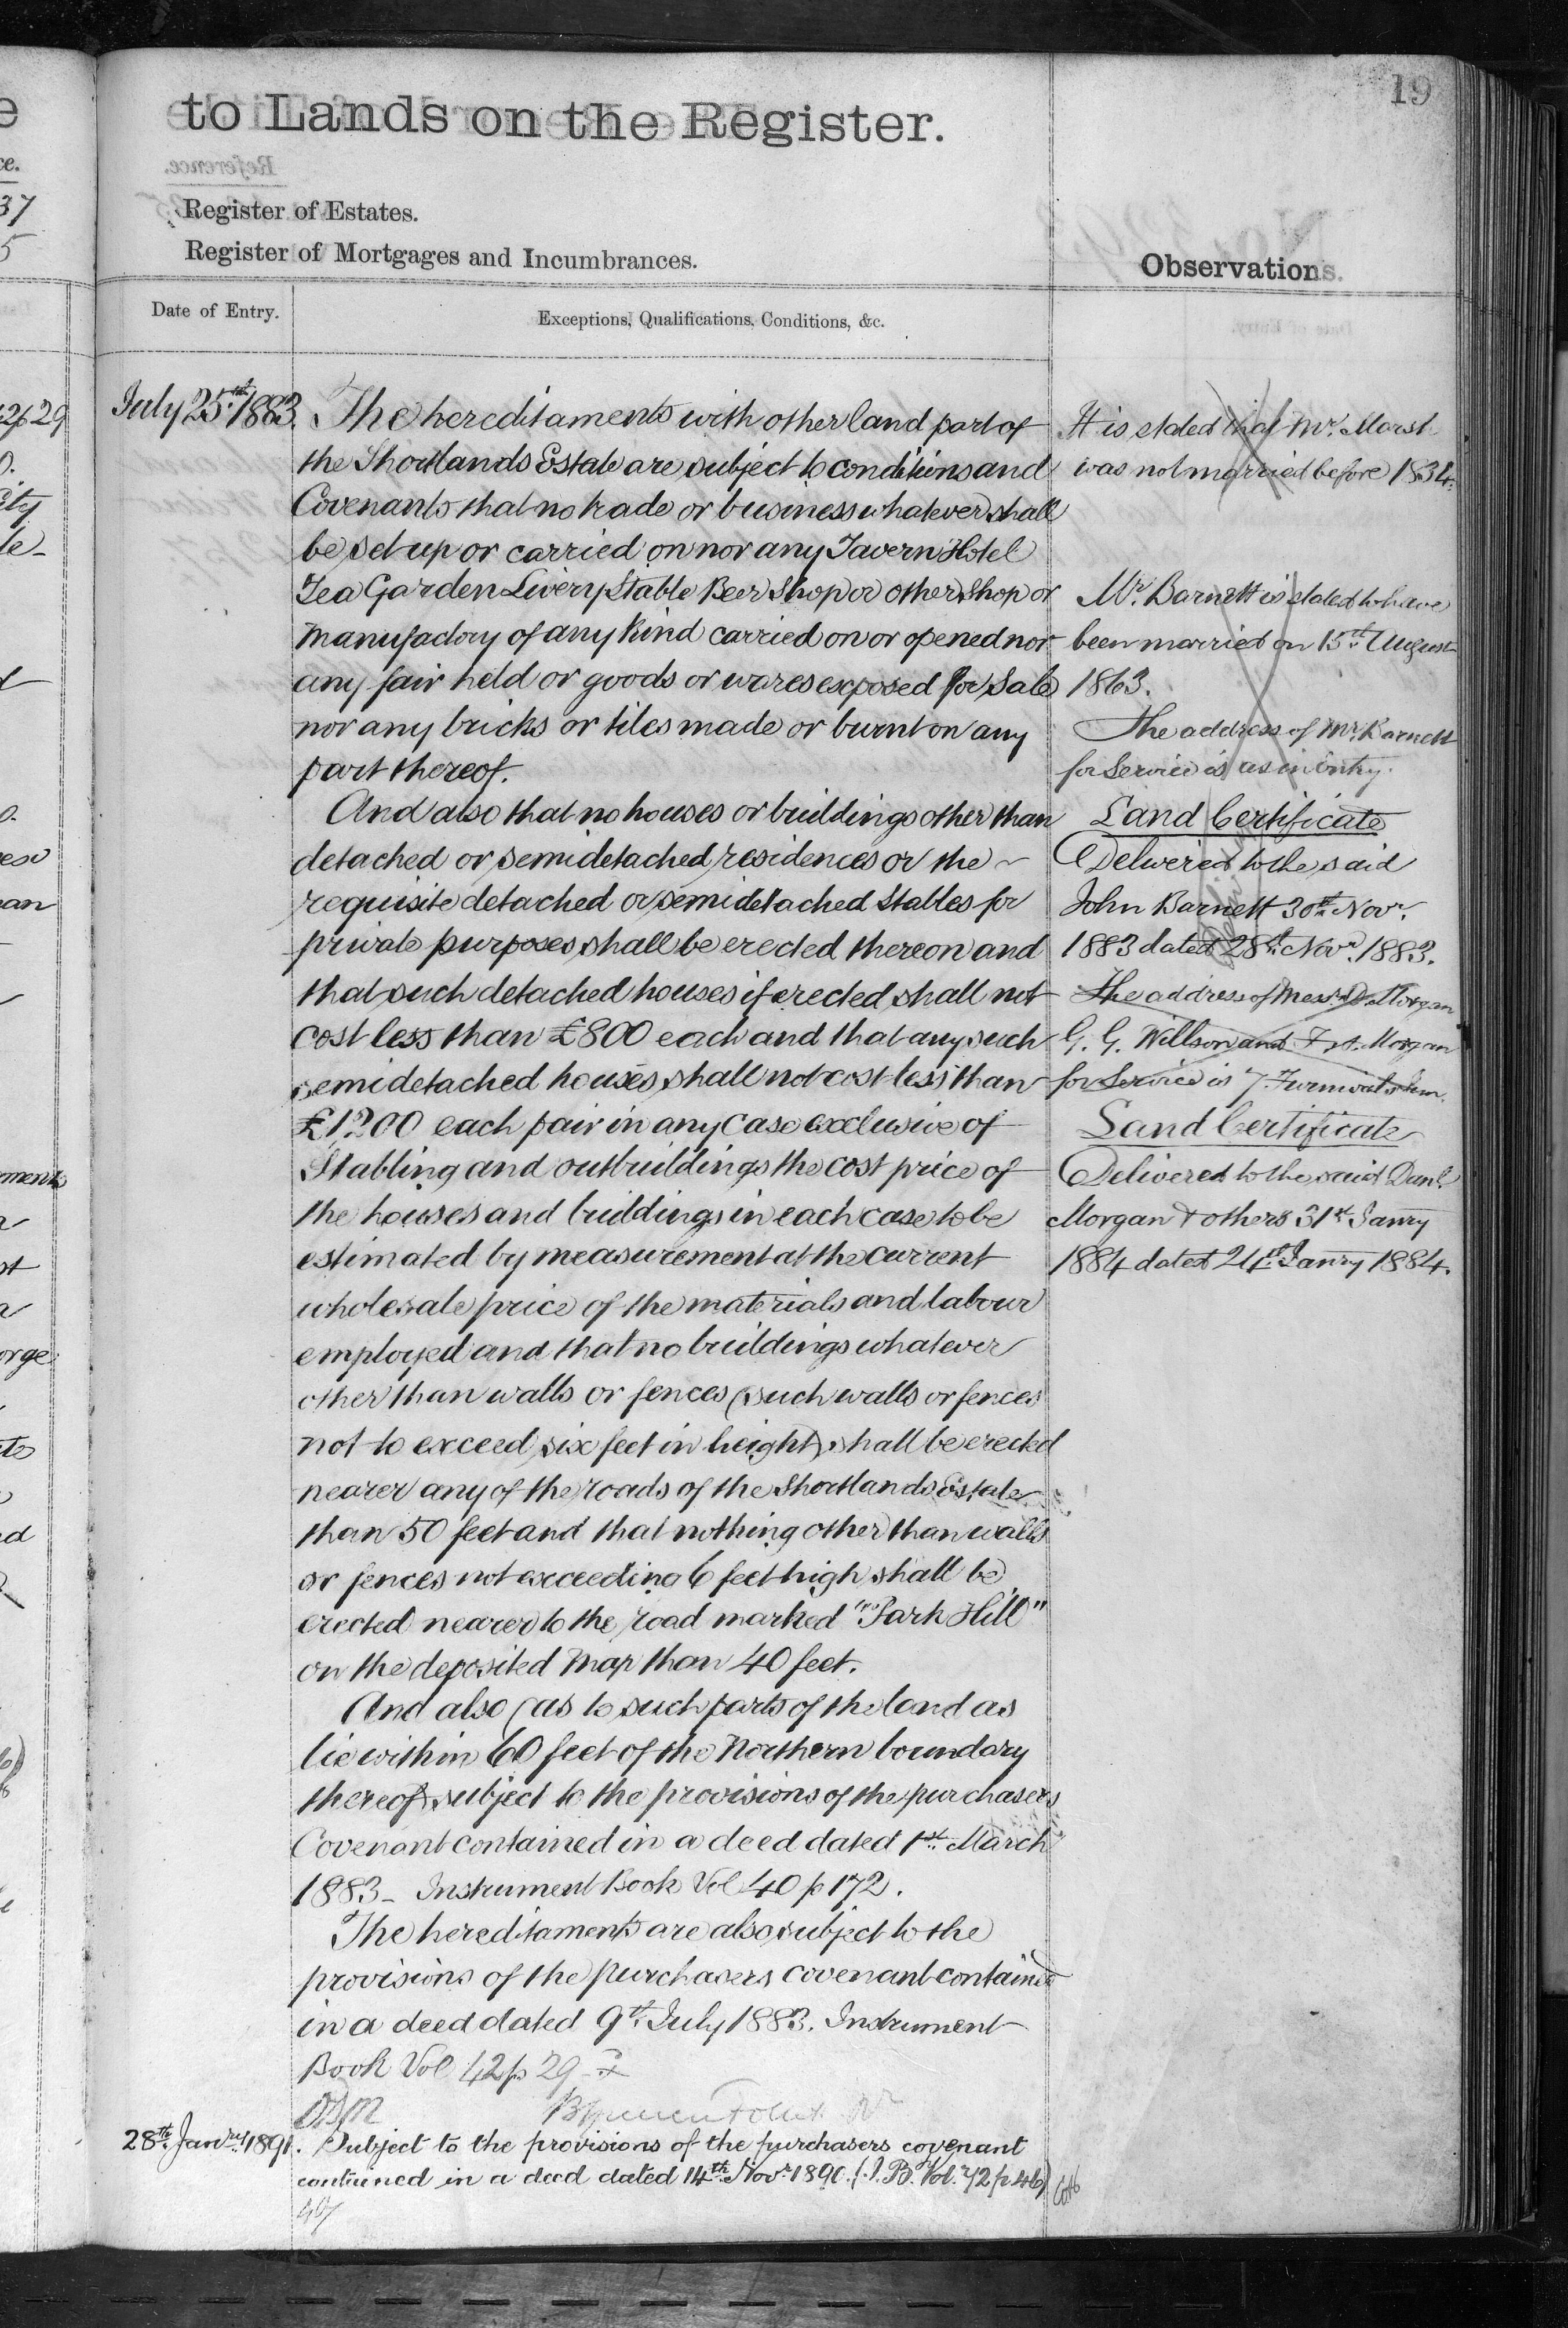 19
to Lands on the Register.
Register of Estates.
Register of Mortgages and Incumbrances.
Observations.
Date of Entry.
Exceptions, Qualifications, Conditions, &c.
July 25th 1883.
The hereditaments with other land part of
the Shortlands Estate are subject to conditions and
Covenants that no trade or business whatever shall
be set up or carried on nor any Tavern Hotel
Tea Garden Livery Stable Beer Shop or other Shop or
manufactory of any kind carried on or opened nor
any fair held or goods or wares exposed for Sale
nor any bricks or tiles made or burnt on any
part thereof.
And also that no houses or buildings other than
detached or semidetached residences or the
requisite detached or semidetached Stables for
private purposes shall be erected thereon and
that such detached houses if erected shall not
cost less than £800 each and that any such
semidetached houses shall not cost less than
£1200 each pair in any case exclusive of
Stabling and outbuildings the cost price of
the houses and buildings in each case to be
estimated by measurement at the current
wholesale price of the materials and labour
employed and that no buildings whatever
other than walls or fences (such walls or fences
not to exceed six feet in height) shall be erected
nearer any of the roads of the Shortlands Estate
than 50 feet and that nothing other than walls
or fences not exceeding 6 feet high shall be
erected nearer to the road marked "Park Hill"
on the deposited Map than 40 feet.
And also (as to such parts of the land as
lie within 60 feet of the Northern boundary
thereof) subject to the provisions of the purchasers
Covenant contained in a deed dated 1st March
1883 - Instrument Book Vol 40 p 172.
The hereditaments are also subject to the
provisions of the purchasers covenant contained
in a deed dated 9th July 1883. Instrument
Book Vol 42 p 29
28th Janry 1891.
Subject to the provisions of the purchasers covenant
contained in a deed dated 14th Novr 1890. (I.B. Vol. 72 p 46)
It is stated that Mr. Marsh
was not married before 1834.
Mr. Barnett is stated to have
been married on 15th August
1863.
The address of Mr. Barnett
for Service is as in Entry.
Land Certificate
Delivered to the said
John Barnett 30th Novr.
1883 dated 28th Novr. 1883.
The address of Messrs D. Morgan
G. G. Willson and Morgan
for Service is 7. Furnivals Inn.
Land Certificate
Delivered to the said Danl.
Morgan & others 31st Janry
1884 dated Janry 1884.